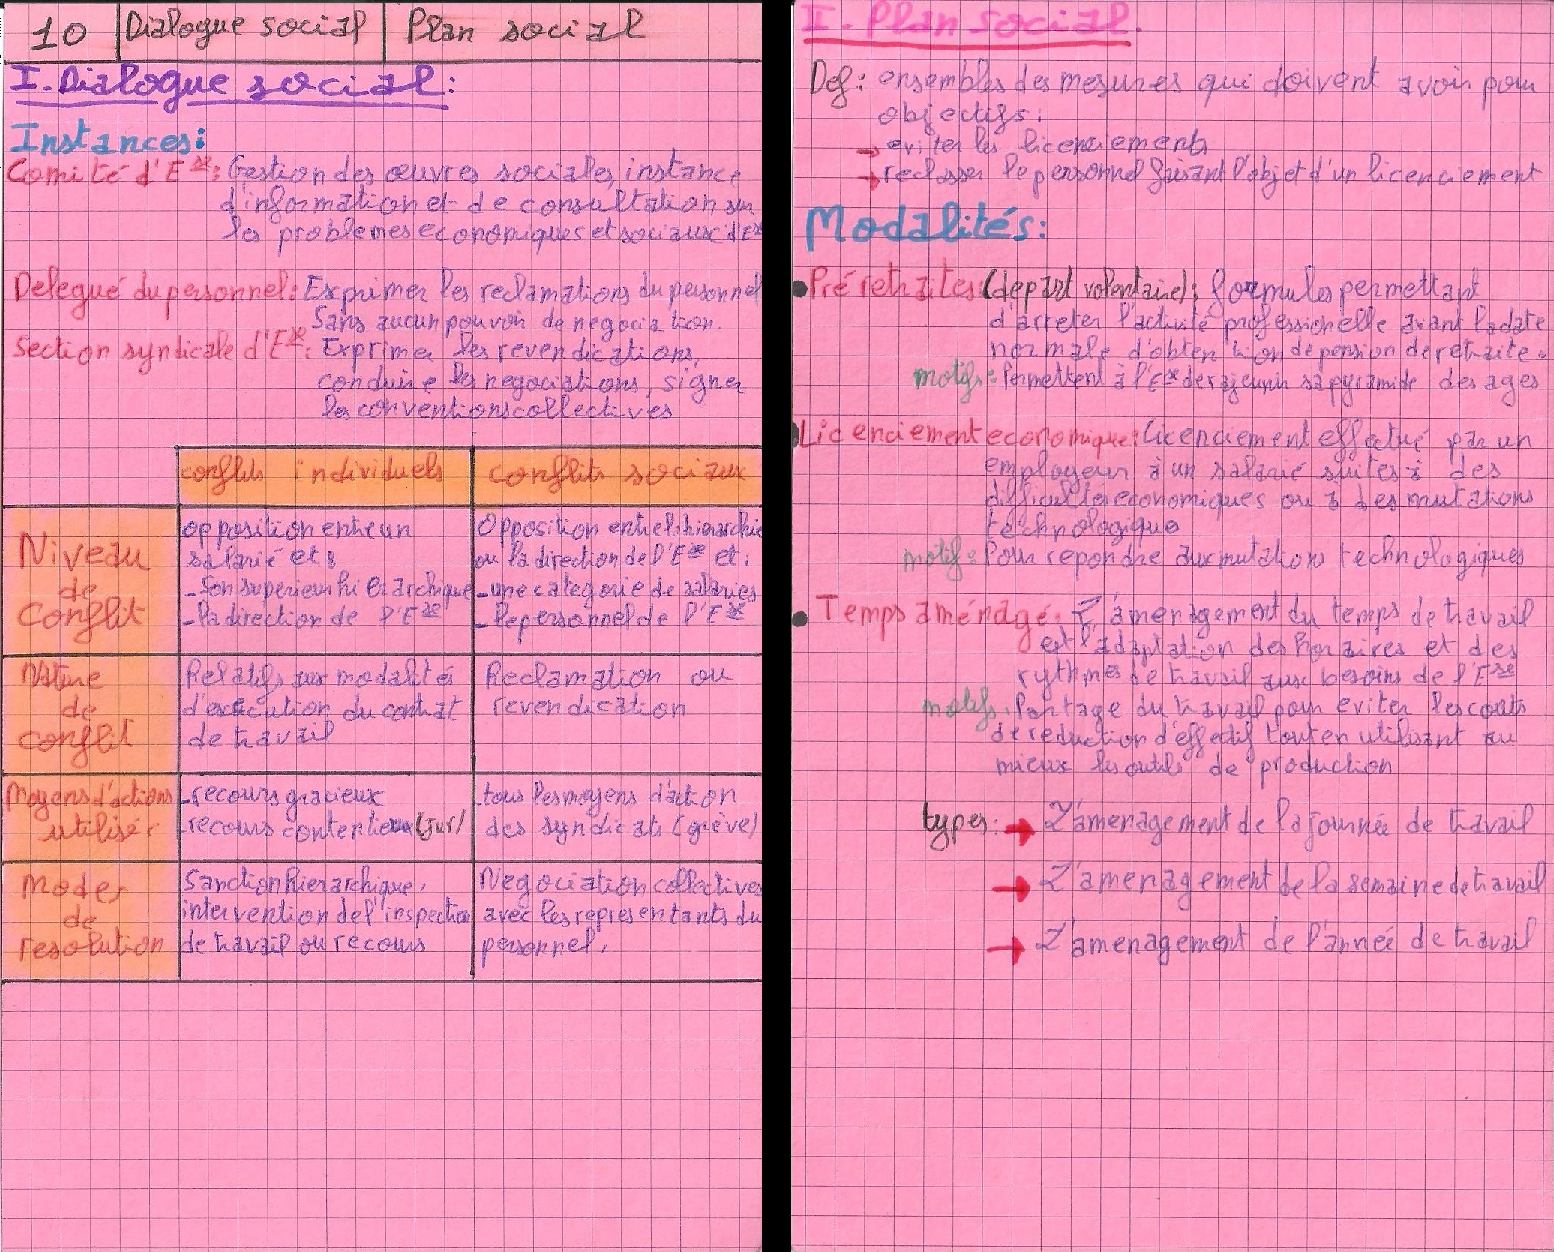 10 Dialogue social Plan social
I. Dialogue social:
Instances:
Comité d'Ese: Gestion des œuvres sociales, instance
d'information et de consultation sur
les problemes economiques et sociaux d'Ese
Delegué du personnel: Exprimer les reclamations du personnel
Sans aucun pouvoir de negociation.
Section syndicale d'Ese: Exprimer les revendications,
conduire les negociations, signer
les conventions collectives
conflits individuels conflits sociaux
Niveau
de
Conflit
opposition entre un
salarié et:
-Son superieur hierarchique
-la direction de l'Ese
Opposition entre l'hierarchie
ou la direction de l'Ese et:
-une categorie de salariés
-le personnel de l'Ese
Nature
de
conflit
Relatifs aux modalités
d'execution du contrat
de travail
Reclamation ou
revendication
Moyens d'actions
utilisés
-recours gracieux
-recours contentieux (jur/
-tous les moyens d'action
des syndicats (grève)
Modes
de
resolution
Sanction hierarchique,
intervention de l'inspection
de travail ou recours
Negociation collectives
avec les representants du
personnel.
I. Plan social.
Def: ensembles des mesures qui doivent avoir pour
objectifs:
→ eviter les licenciements
→ reclasser le personnel faisant l'objet d'un licenciement
Modalités:
• Pré retraites (départ volontaire): formules permettant
d'arreter l'activité professionelle avant la date
normale d'obtention de pension de retraite.
motifs: Permettent à l'Ese de rajeunir sa pyramide des ages
• Licenciement economique: licenciement effectué par un
employeur à un salarié suites à des
difficultés economiques ou à des mutations
technologique
motif: Pour repondre aux mutation technologiques
• Temps aménagé: L'amenagement du temps de travail
est l'adaptation des horaires et des
rythmes de travail aux besoins de l'Ese
motifs: Partage du travail pour eviter les couts
de reduction d'effectif tout en utilisant au
mieux les outils de production
types: → L'amenagement de la journée de travail
→ L'amenagement de la semaine de travail
→ L'amenagement de l'année de travail